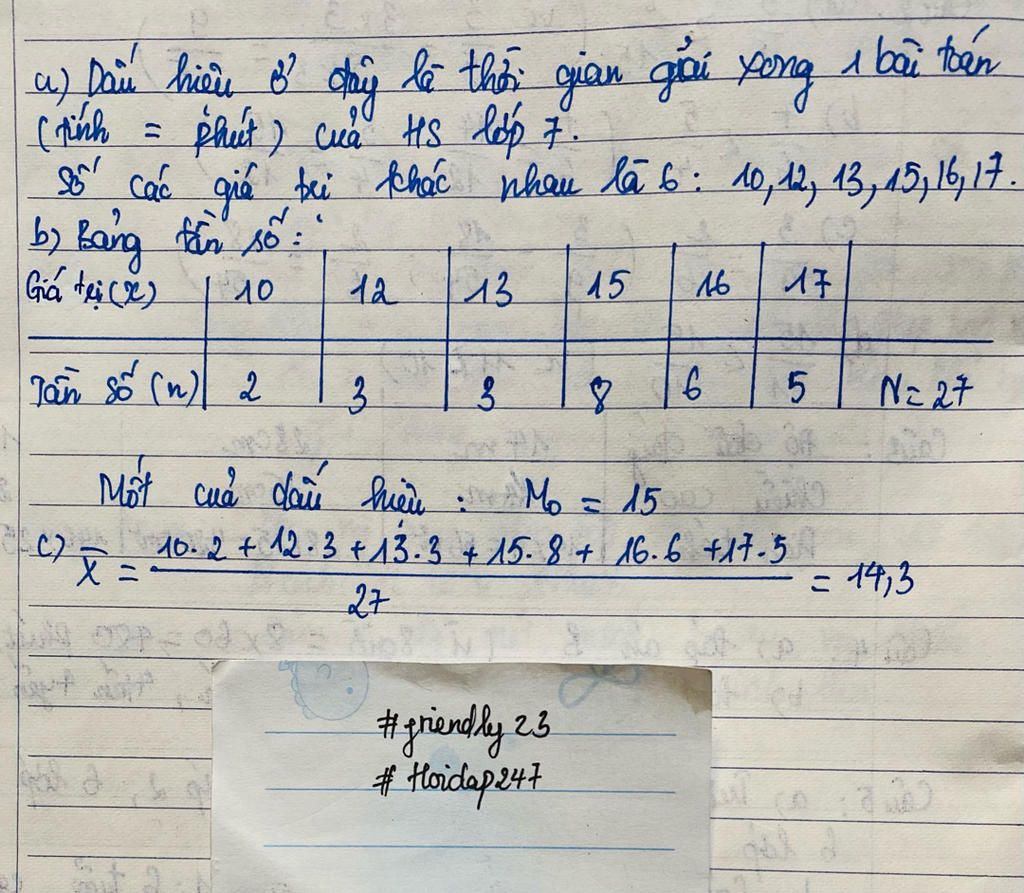 a) Dấu hiệu ở đây là thời gian giải xong 1 bài toán
(tính = phút) của HS lớp 7.
Số các giá trị khác nhau là 6: 10, 12, 13, 15, 16, 17.
b) Bảng tần số:
Giá trị (x) 10 12 13 15 16 17
Tần số (n) 2 3 3 8 6 5 N = 27
Mốt của dấu hiệu: M₀ = 15
c) X̄ = (10.2 + 12.3 + 13.3 + 15.8 + 16.6 + 17.5) / 27 = 14,3
#friendly23
#Hoidap247